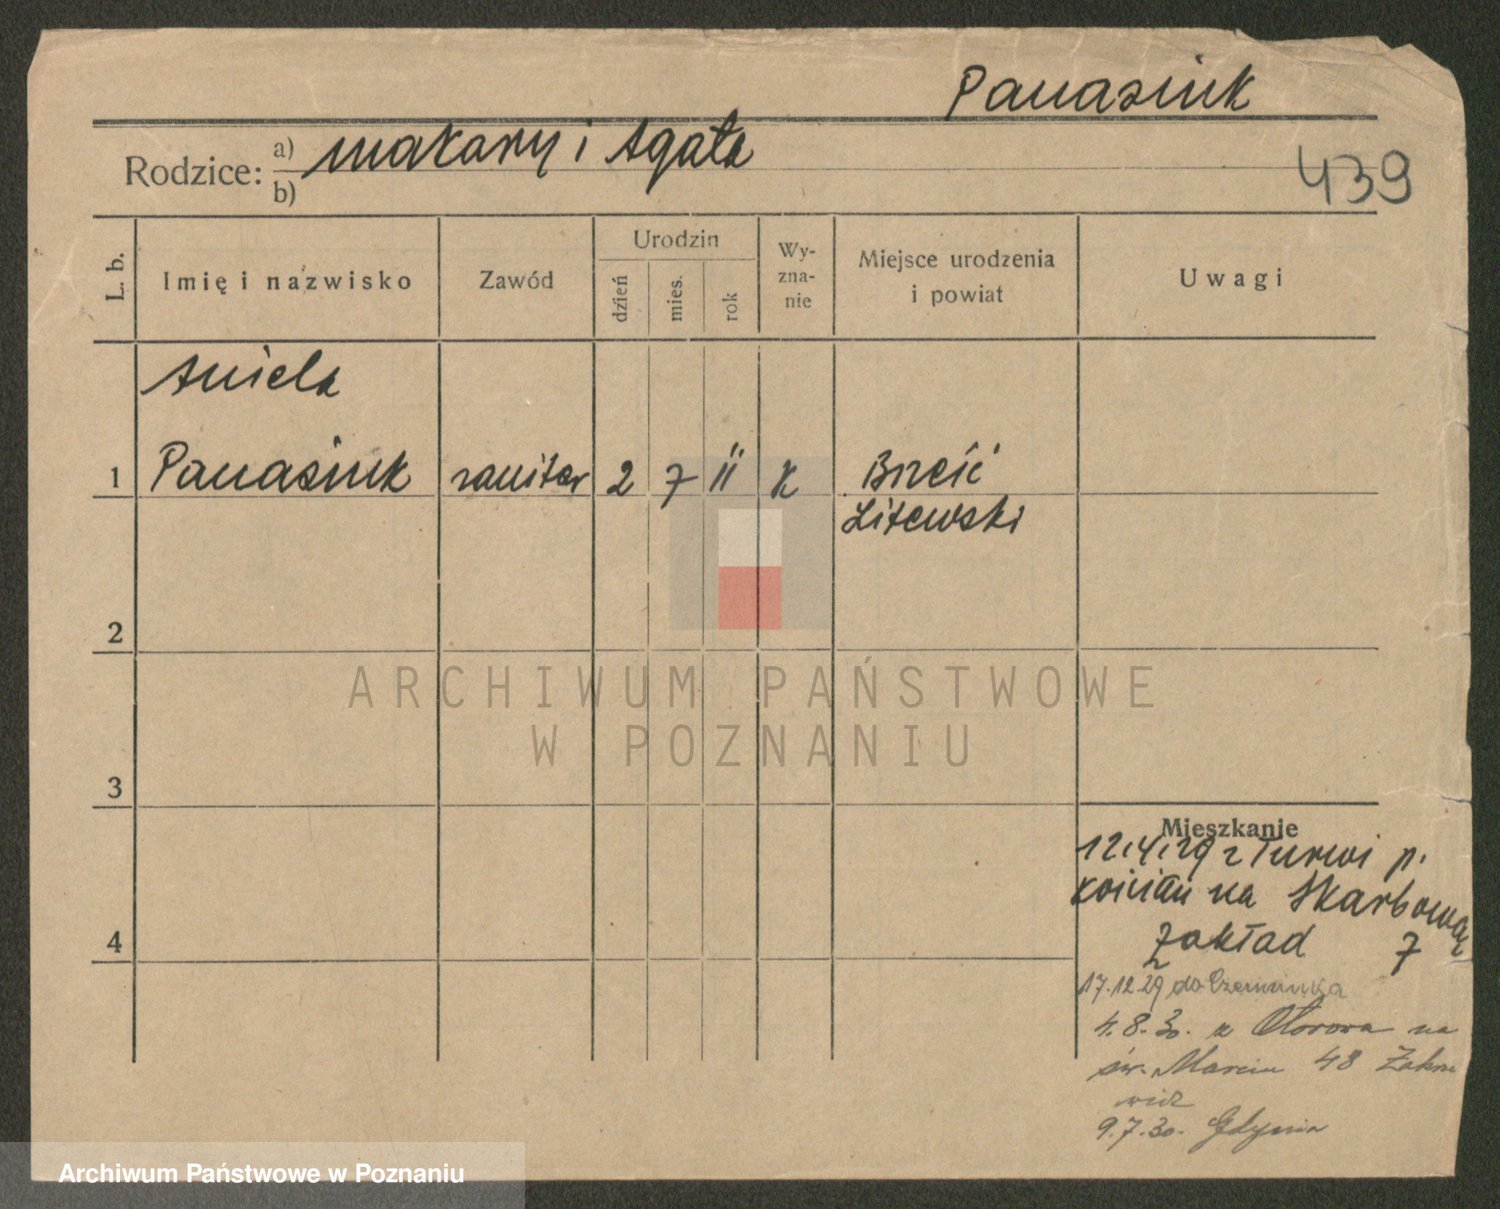 Panasiuk
Rodzice: a) Makary i Agata
b)
439
L. b.
Imię i nazwisko
Zawód
Urodzin
dzień
mies.
rok
Wy-
zna-
nie
Miejsce urodzenia
i powiat
Uwagi
Aniela
1 Panasiuk sanitar 2 7 11 K Brześć
Litewski
2
3
4
Mieszkanie
12.4.29 z Turwi p.
Kościan na Skarbową
Zakład 7
17.12.29 do
4.8.30. z Otorowa na
św. Marcin 48 Zakrze
wicz
9.7.30. Gdynia
ARCHIWUM PAŃSTWOWE
W POZNANIU
Archiwum Państwowe w Poznaniu